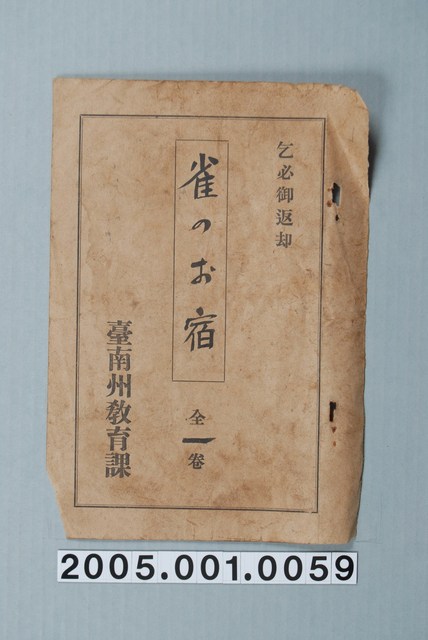 乞必御返却
雀のお宿
全一卷
臺南州敎育課
2005.001.0059